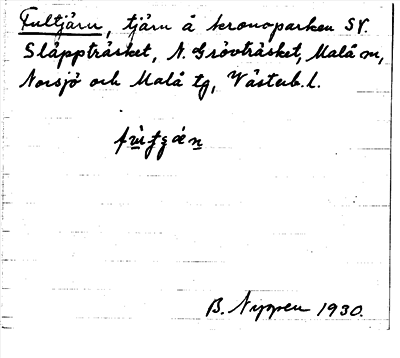 Fultjärn, tjärn å kronoparken SV.
Släppträsket, N. Grövträsket, Malå sn,
Norsjö och Malå tg, Västerb. l.
B. Nyppen 1930.